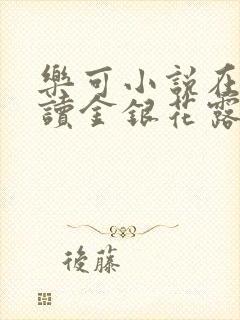 樂可小説在
讀金銀花露
後藤